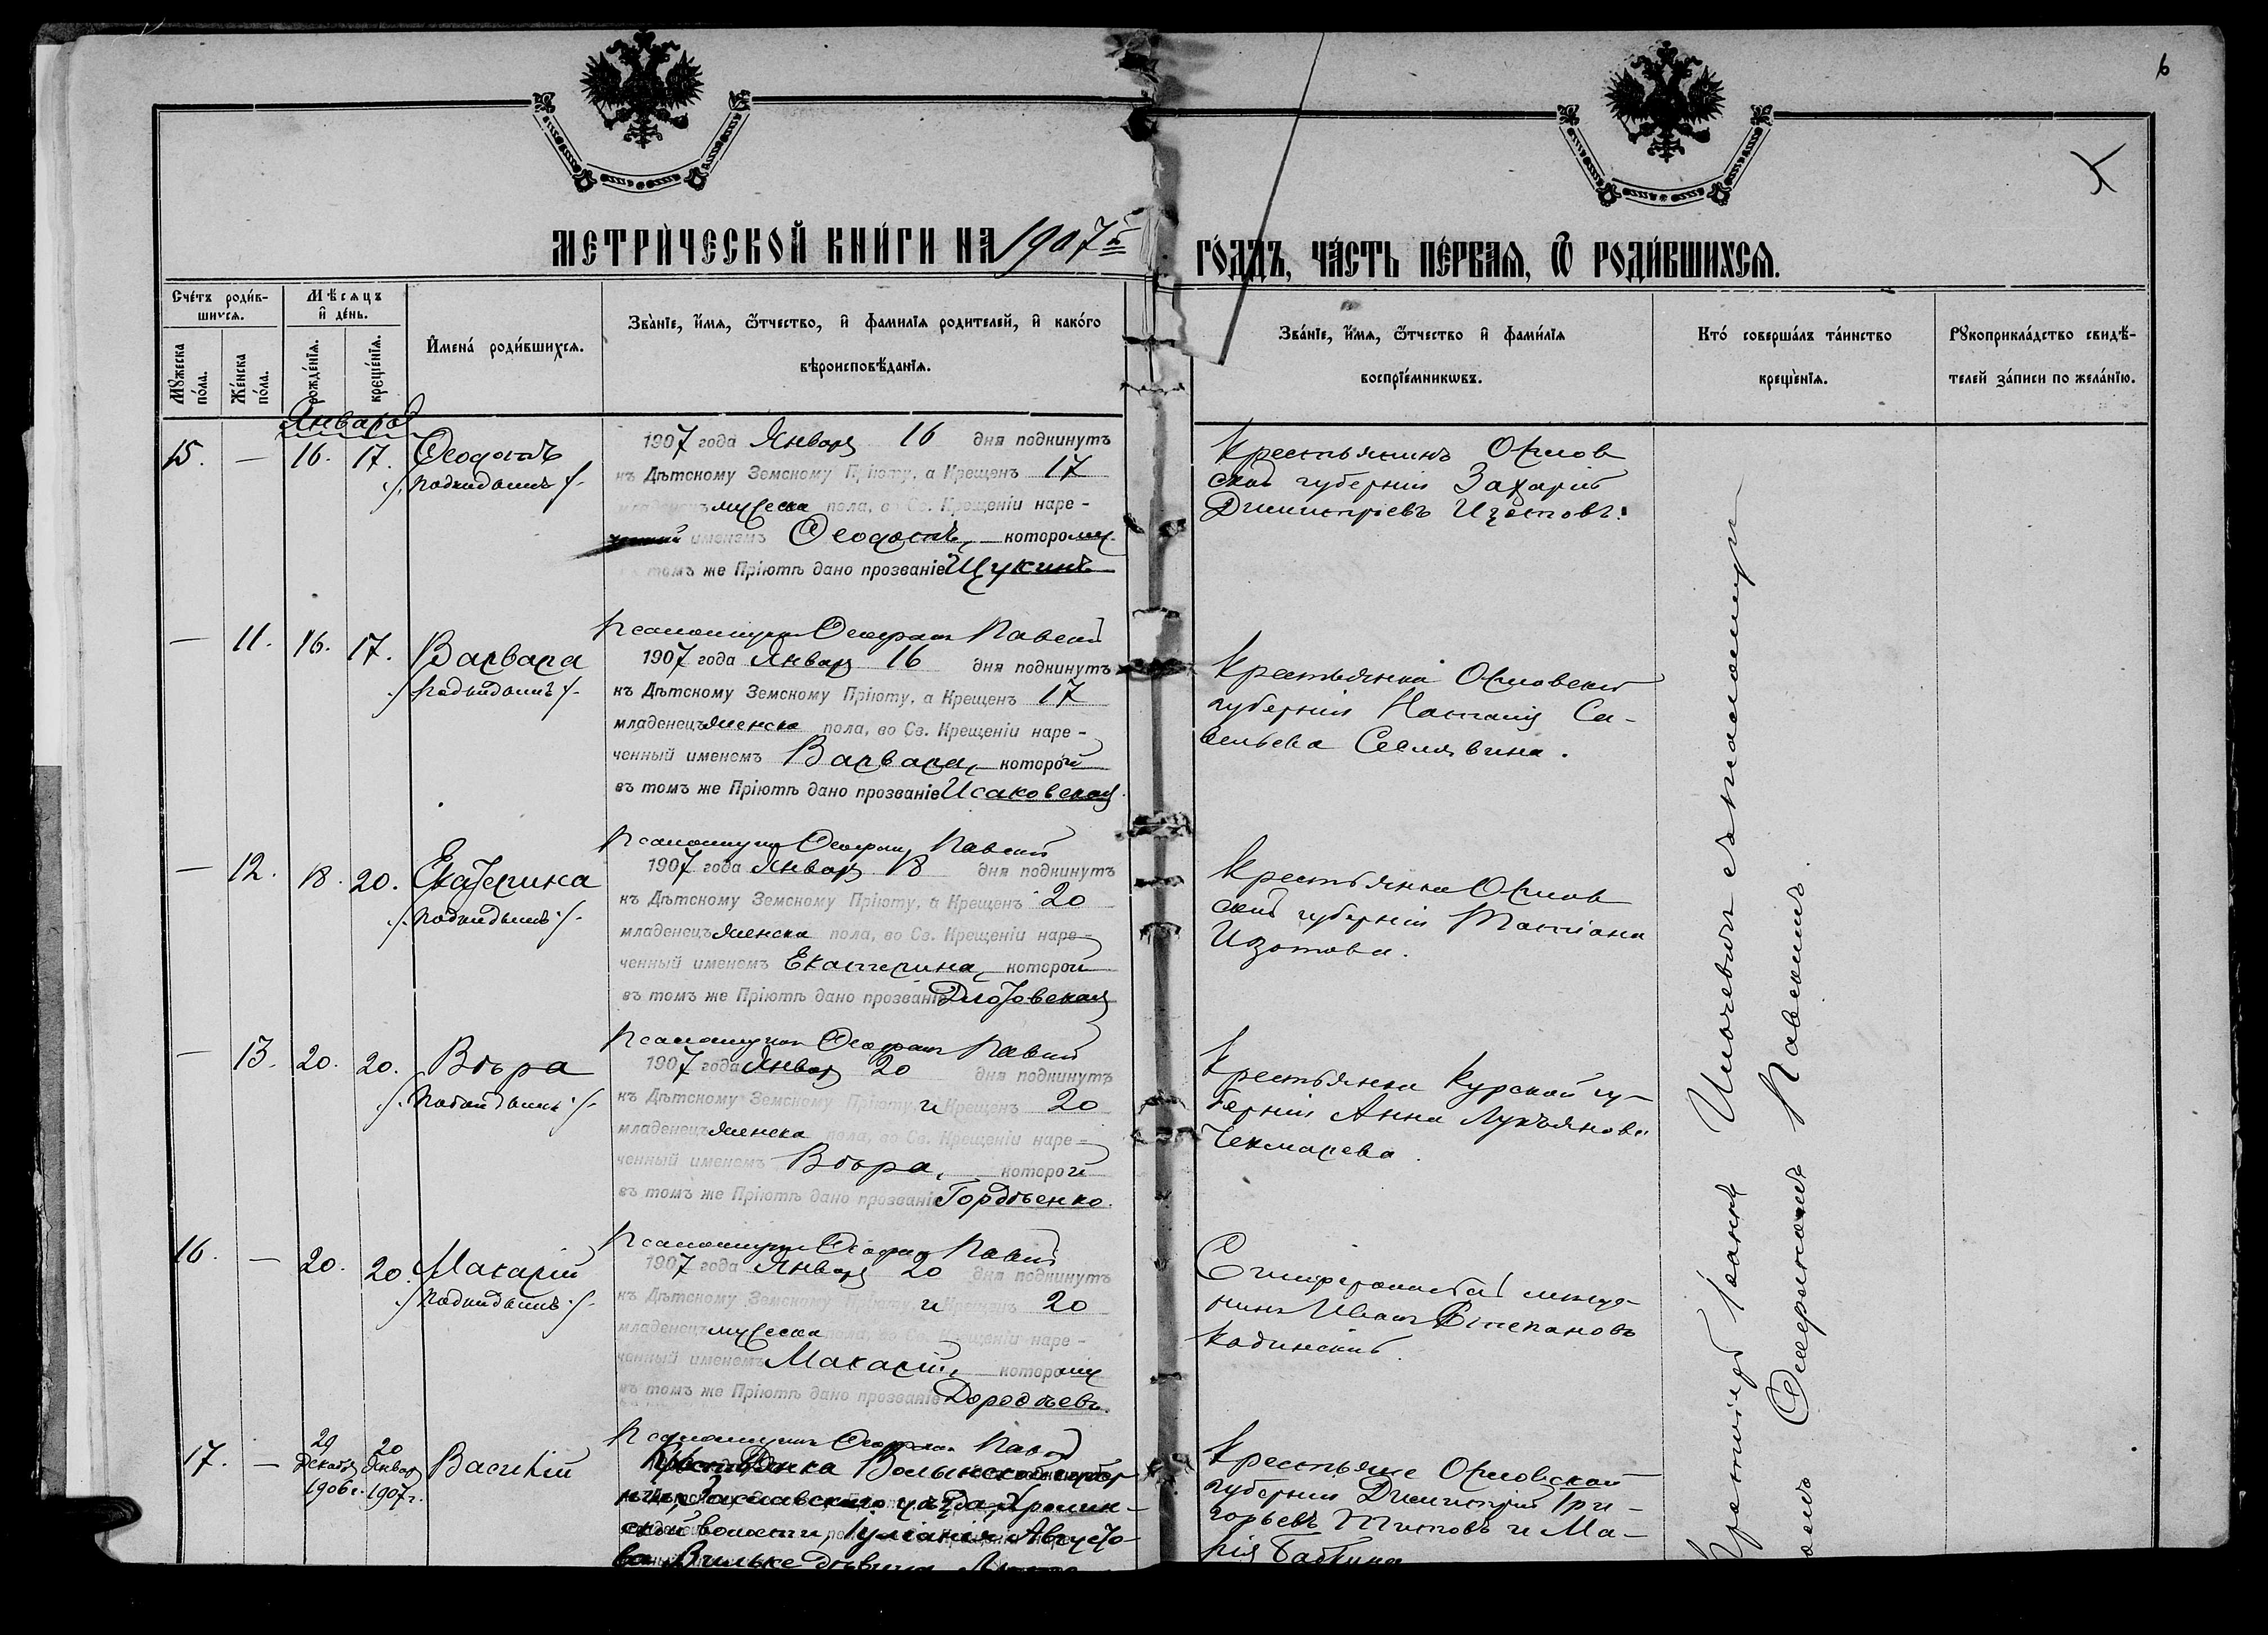 6
МЕТРИ́ЧЕСКОЙ КНИ́ГИ НА 1907й
ГО́ДДЪ, ЧА́СТЬ ПЕ́РВАѦ, Ѿ РОДИ́ВШИХСѦ.
Сче́тъ роди́вшихся.
Мѣ́сяцъ и҆ де́нь.
Мꙋ́жеска по́ла.
Же́нска по́ла.
рожде́нїя.
креще́нїя.
И҆мена̀ роди́вшихсѧ.
Зва́нїе, и҆́мѧ, ѻ҆́тчество, и҆ фами́лїѧ роди́телей, и҆ како́гѡ
вѣроисповѣ́данїѧ.
Зва́нїе, и҆́мѧ, ѻ҆́тчество и҆ фами́лїѧ
воспрїе́мникѡвъ.
Кто́ соверша́лъ та́инство
креще́нїѧ.
Рꙋкоприкла́дство свидѣ́-
телей за́писи по жела́нїю.
Января
15. — 16. 17. Ѳеодотъ
./. подкидышъ ./.
1907 года Января 16 дня подкинутъ
къ Дѣтскому Земскому Пріюту, а Крещенъ 17
младенецъ мужеска пола, во Св. Крещеніи наре-
ченный именемъ Ѳеодотъ, которому
въ томъ же Пріютѣ дано прозваніе Щукинъ
Крестьянинъ Орлов
ской губерніи Захарій
Димитріевъ Изотовъ.
Псаломщикъ Павскій
— 11. 16. 17. Варвара
./. подкидышъ ./.
1907 года Января 16 дня подкинутъ
къ Дѣтскому Земскому Пріюту, а Крещенъ 17
младенецъ женска пола, во Св. Крещеніи наре-
ченный именемъ Варвара, которой
въ томъ же Пріютѣ дано прозваніе Исаковская
Крестьянка Орловской
губерніи Са-
вельева
Псаломщикъ Павскій
— 12. 18. 20. Екатерина
./. подкидышъ ./.
1907 года Января 18 дня подкинутъ
къ Дѣтскому Земскому Пріюту, а Крещенъ 20
младенецъ женска пола, во Св. Крещеніи наре-
ченный именемъ Екатерина, которой
въ томъ же Пріютѣ дано прозваніе
Крестьянка Орлов
ской губерніи Татіана
Изотова.
Псаломщикъ Павскій
— 13. 20. 20. Вѣра
./. Подкидышъ ./.
1907 года Января 20 дня подкинутъ
къ Дѣтскому Земскому Пріюту и Крещенъ 20
младенецъ женска пола, во Св. Крещеніи наре-
ченный именемъ Вѣра, которой
въ томъ же Пріютѣ дано прозваніе Гордѣенко.
Крестьянка Курской гу-
берніи Анна Лукьянова
Чекмарева.
Псаломщикъ Павскій
16. — 20. 20. Макарій
./. Подкидышъ ./.
1907 года Января 20 дня подкинутъ
къ Дѣтскому Земскому Пріюту и Крещенъ 20
младенецъ мужеска пола, во Св. Крещеніи наре-
ченный именемъ Макарій, которому
въ томъ же Пріютѣ дано прозваніе
Симферопольскій мѣща-
нинъ Иванъ Степановъ
Псаломщикъ Павскій
17. — 29 Декабря 1906 г. 20 Января 1907 г. Василій
Крестьянка Волынской губер-
ніи, Заславскаго уѣзда,
ской волости, Іуліанія Августо-
ва Вильке дѣвица
Крестьяне Орловской
губерніи Димитрій Гри-
горьевъ Титовъ и Ма-
рія
Протоіерей Іоаннъ съ псаломщи-
комъ Павскимъ.